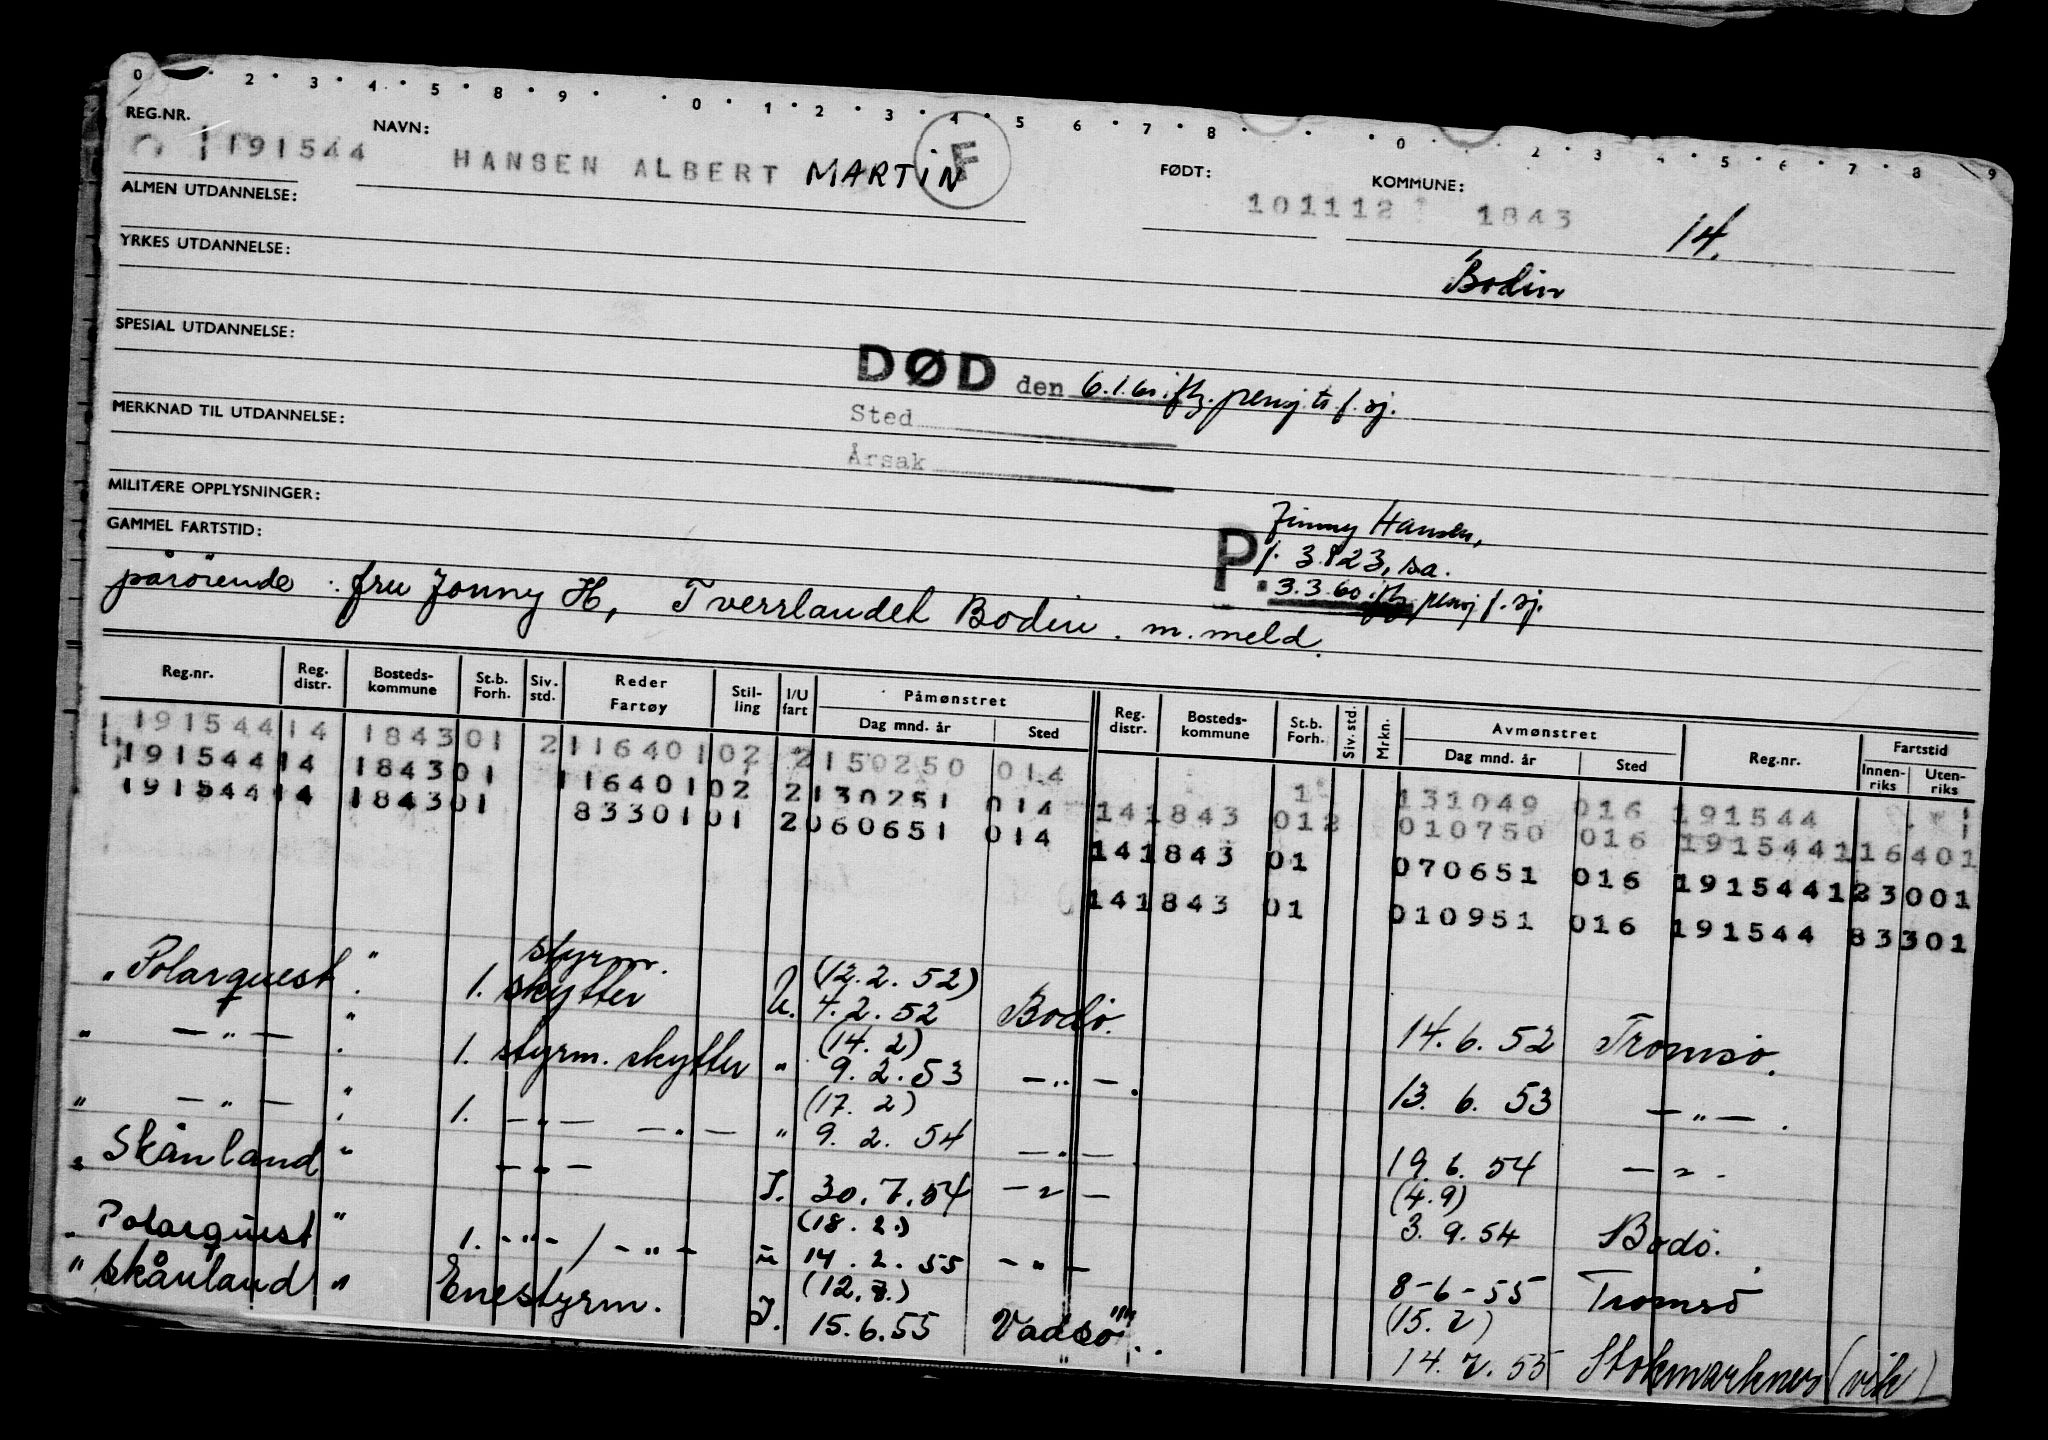 0 • 2 • 3 • 4 • 5 • 8 • 9 • • 0 • 1 • 2 • 3 • 4 • 5 6 • 7 • 8 • • • 0 • • 2 • 3 • 4 • 5 6 • 7 • 8 • 9
REG.NR. NAVN: FØDT: KOMMUNE:
191544 HANSEN ALBERT MARTIN F 101112 1843 14.
ALMEN UTDANNELSE:
YRKES UTDANNELSE: Bodin
SPESIAL UTDANNELSE:
DØD den 6.1.60 ifg. pensj.tr. f. sj.
MERKNAD TIL UTDANNELSE: Sted
Årsak
MILITÆRE OPPLYSNINGER: Jinny Hansen,
GAMMEL FARTSTID: P. f. 3.823, sa.
3.3.60 ifg. pensj f. sj.
pårörende : fru Jonny H, Tverrlandet Bodin. m. meld.
Reg.nr. Reg. distr. Bosteds- kommune St.b. Forh. Siv. std. Reder Fartøy Stil- ling I/U fart Påmønstret Dag mnd. år Sted Reg. distr. Bosteds- kommune St.b. Forh. Siv. std. Mrkn. Avmønstret Dag mnd. år Sted Reg.nr. Fartstid Innen- riks Uten- riks
191544 14 1843 01 2 116401 02 2 150250 014
191544 14 1843 01 116401 02 2 130251 014 131049 016 191544
191544 14 1843 01 83301 01 2 060651 014 14 1843 012 010750 016 191544 116401
14 1843 01 070651 016 191544 123001
14 1843 01 010951 016 191544 83301
styrm. (12.2.52)
„ Polarquest " 1. skytter U. 4.2.52 Bodø. 14.6.52 Tromsø.
(14.2)
„ — „ — " 1. styrm. skytter " 9.2.53 — „ — . 13.6.53 — „ — .
(17.2)
„ — „ — " 1. — „ — — „ — " 9.2.54 — „ — . 19.6.54 — „ — .
(4.9)
„ Skånland " — „ — I. 30.7.54 — „ — 3.9.54 Bodö.
(18.2.)
„ Polarquest " 1. - „ - / - „ - u 14.2.55 — „ — 8-6-55 Tromsö
(12.8.) (15.7)
" Skånland " Enestyrm. I. 15.6.55 Vadsö 14.7.55 Stokmarknes (vik)